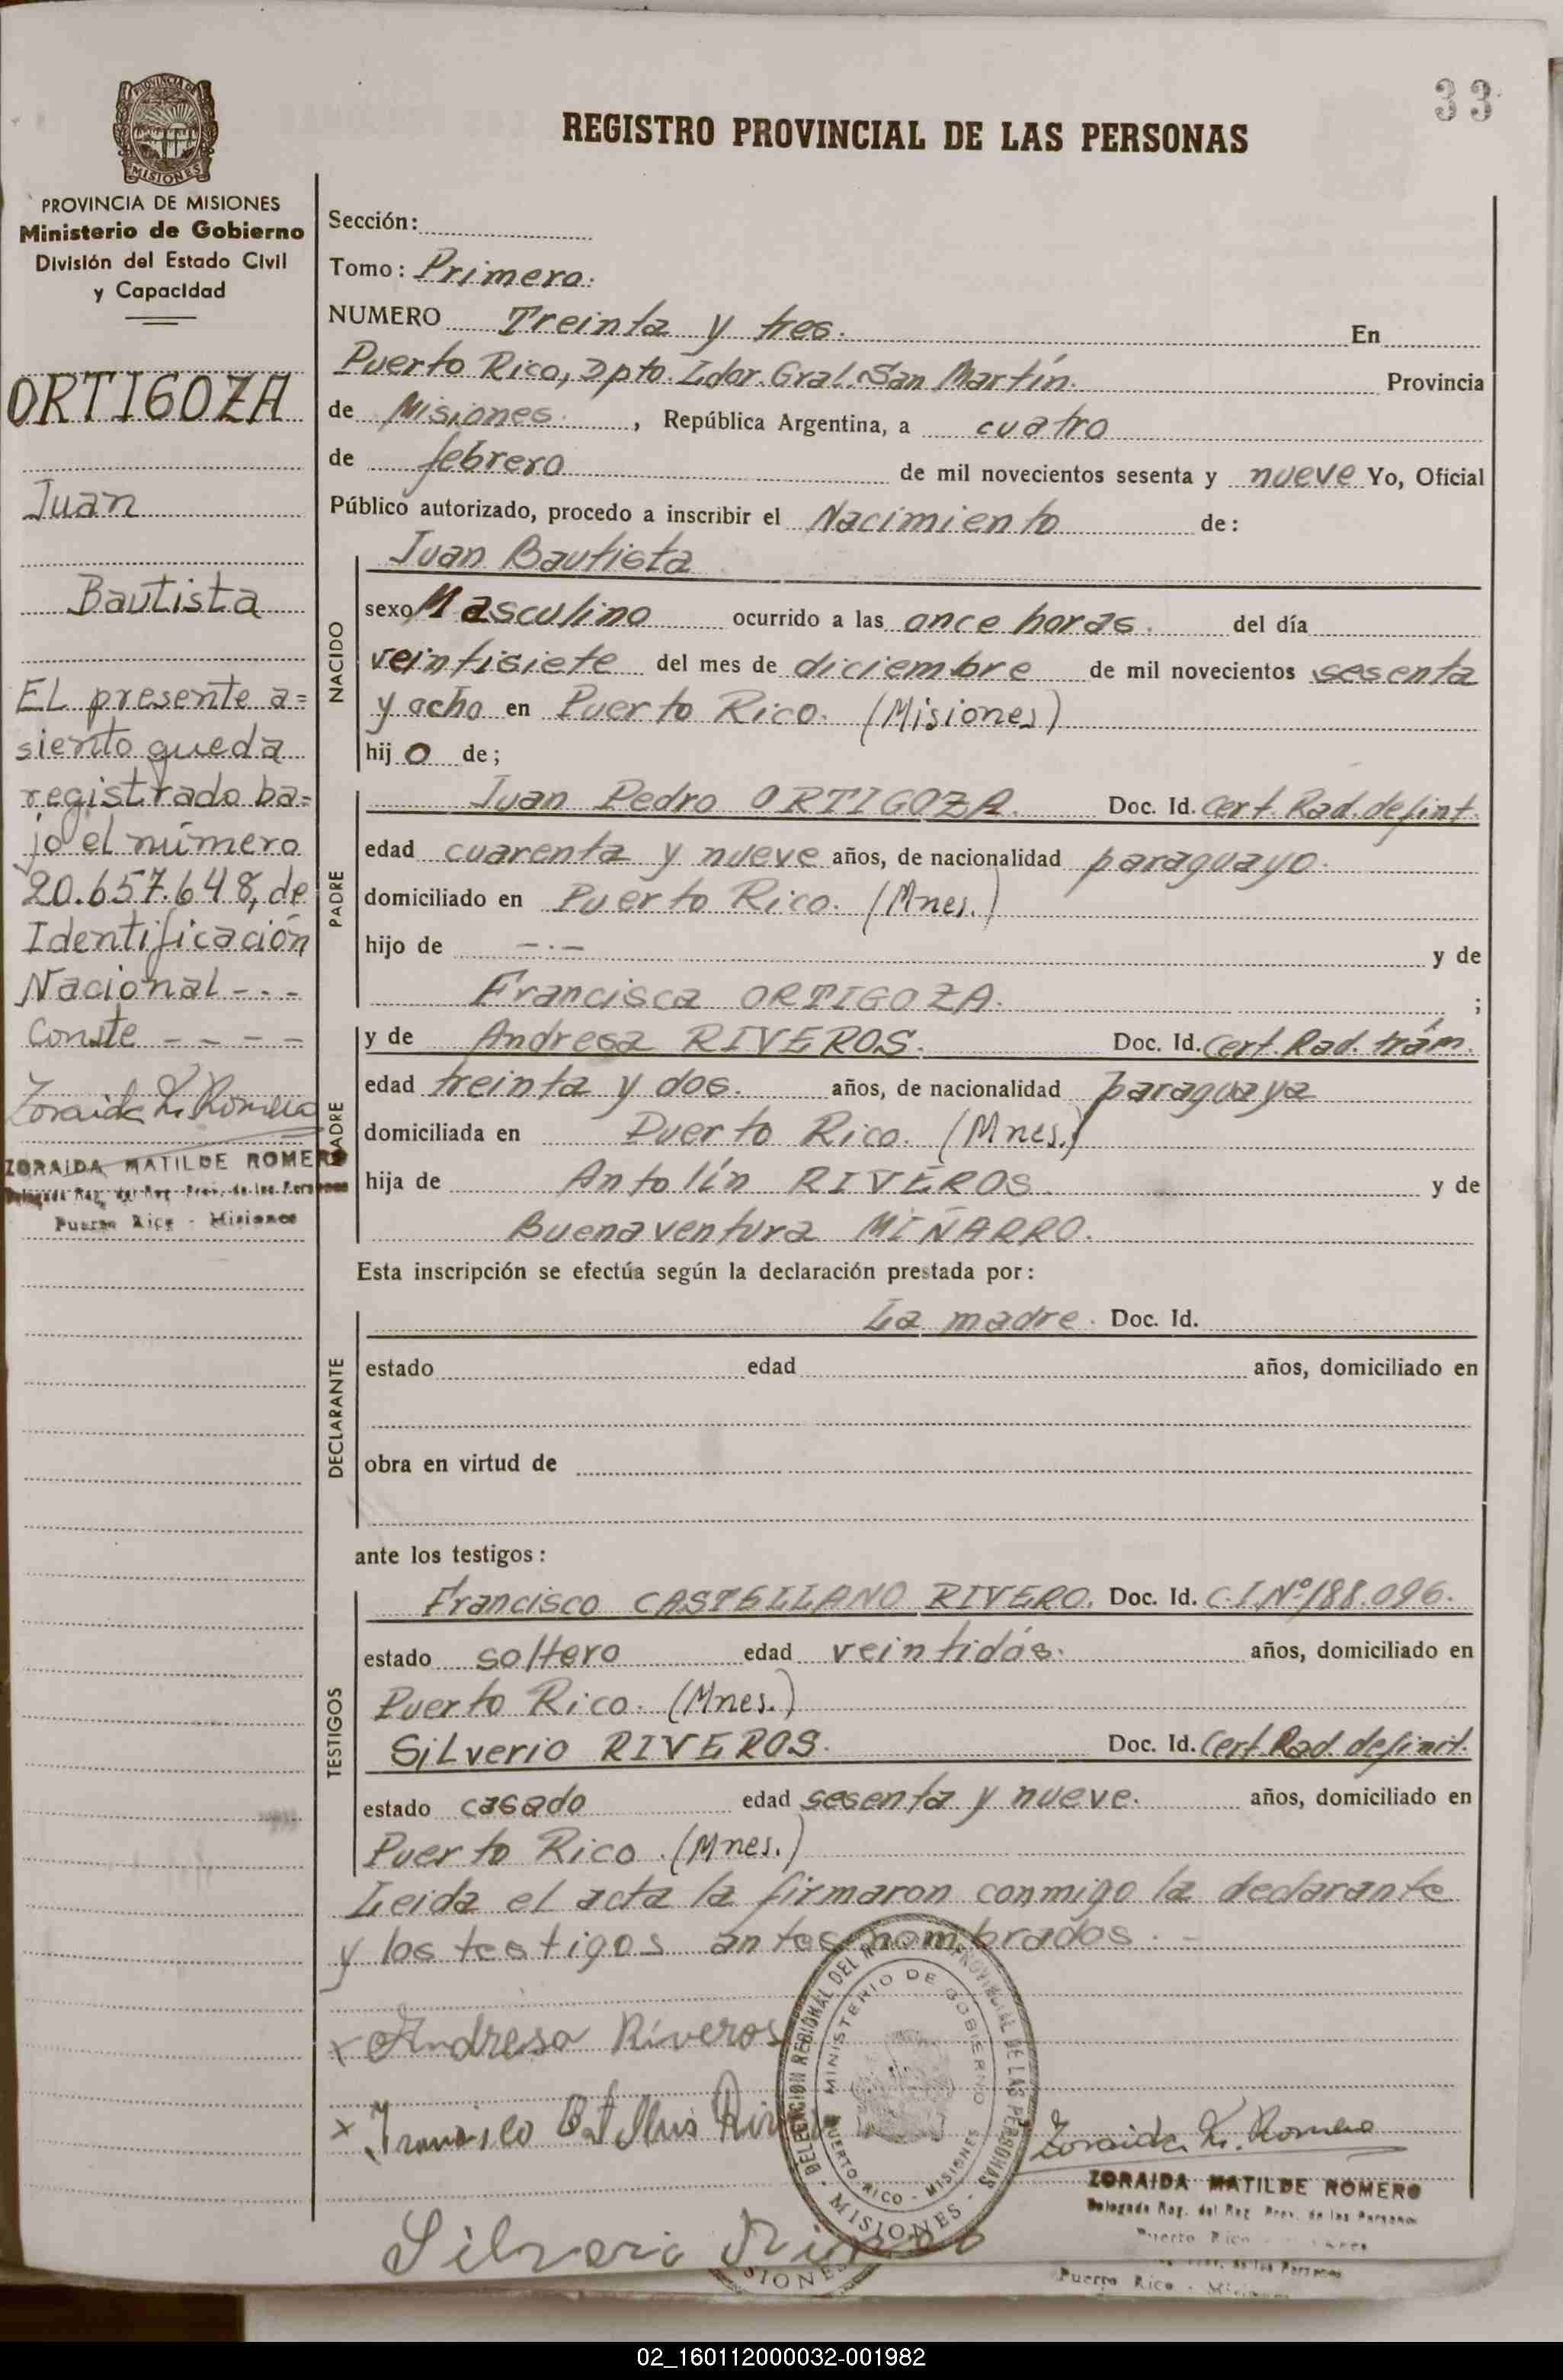 33
PROVINCIA DE
MISIONES
REGISTRO PROVINCIAL DE LAS PERSONAS
PROVINCIA DE MISIONES
Ministerio de Gobierno
División del Estado Civil
y Capacidad
ORTIGOZA
Juan
Bautista
EL presente a=
siento queda
registrado ba=
jo el número
20.657.648, de
Identificación
Nacional - . -
Conste - - - -
Zoraida M. Romero
ZORAIDA MATILDE ROMERO
Delegada Reg. del Reg. Prov. de las Personas
Puerto Rico - Misiones
Sección:
Tomo: Primero.
NUMERO Treinta y tres. En
Puerto Rico, Dpto. Ldor. Gral. San Martín. Provincia
de Misiones. , República Argentina, a cuatro
de febrero de mil novecientos sesenta y nueve Yo, Oficial
Público autorizado, procedo a inscribir el Nacimiento de:
Juan Bautista
NACIDO
sexo Masculino ocurrido a las once horas. del día
veintisiete del mes de diciembre de mil novecientos sesenta
y ocho en Puerto Rico. (Misiones)
hij o de;
PADRE
Juan Pedro ORTIGOZA. Doc. Id. Cert. Rad. defint.
edad cuarenta y nueve años, de nacionalidad paraguayo.
domiciliado en Puerto Rico. (Mnes.)
hijo de -.- y de
Francisca ORTIGOZA. ;
MADRE
y de Andresa RIVEROS. Doc. Id. Cert. Rad. trám.
edad treinta y dos. años, de nacionalidad paraguaya
domiciliada en Puerto Rico. (Mnes.)
hija de Antolín RIVEROS. y de
Buenaventura MIÑARRO.
Esta inscripción se efectúa según la declaración prestada por:
DECLARANTE
La madre. Doc. Id.
estado edad años, domiciliado en
obra en virtud de
ante los testigos:
TESTIGOS
Francisco CASTELLANO RIVERO. Doc. Id. C.I.Nº 188.096.
estado soltero edad veintidós. años, domiciliado en
Puerto Rico. (Mnes.)
Silverio RIVEROS. Doc. Id. Cert. Rad. definit.
estado casado edad sesenta y nueve. años, domiciliado en
Puerto Rico. (Mnes.)
Leida el acta la firmaron conmigo la declarante
y los testigos antes nombrados. -
x Andresa Riveros
x Francisco
Silverio
DELEGACION REGIONAL DEL REG. PROVINCIAL DE LAS PERSONAS
- MISIONES -
MINISTERIO DE GOBIERNO
PUERTO RICO - MISIONES
Zoraida M. Romero
ZORAIDA MATILDE ROMERO
Delegada Reg. del Reg. Prov. de las Personas
Puerto Rico
de las Personas
Puerto Rico - Misiones
02_160112000032-001982